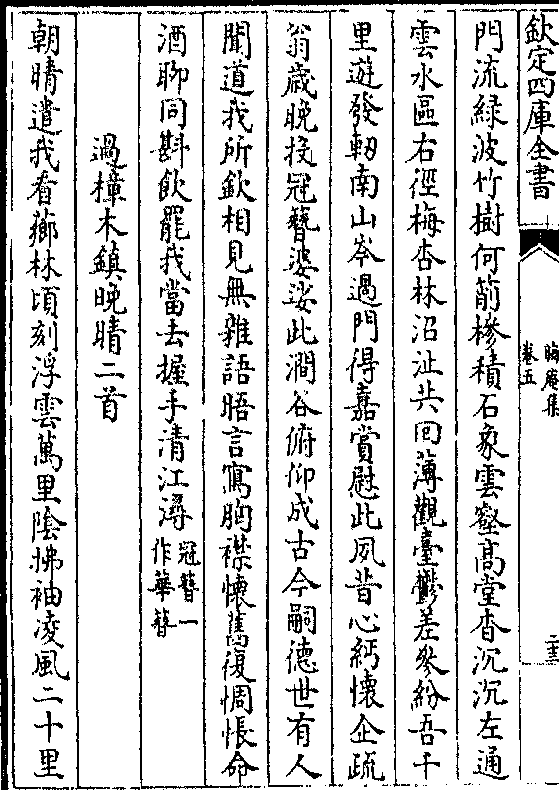 欽定四庫全書
晦庵集
卷五
二十三
門流綠波竹樹何箾槮積石象雲壑髙堂杳沉沉左通
雲水區右徑梅杏林沼沚共回薄觀臺鬱差參紛吾千
里遊發軔南山岑過門得嘉賞慰此夙昔心緬懷企疏
翁歳晚投冠簪婆娑此澗谷俯仰成古今嗣德世有人
聞道我所欽相見無雜語晤言寫胸襟懷舊復惆悵命
酒聊同斟飲罷我當去握手清江潯
冠簪一
作華簪
過樟木鎮晚晴二首
朝晴遣我看薌林頃刻浮雲萬里陰拂袖凌風二十里